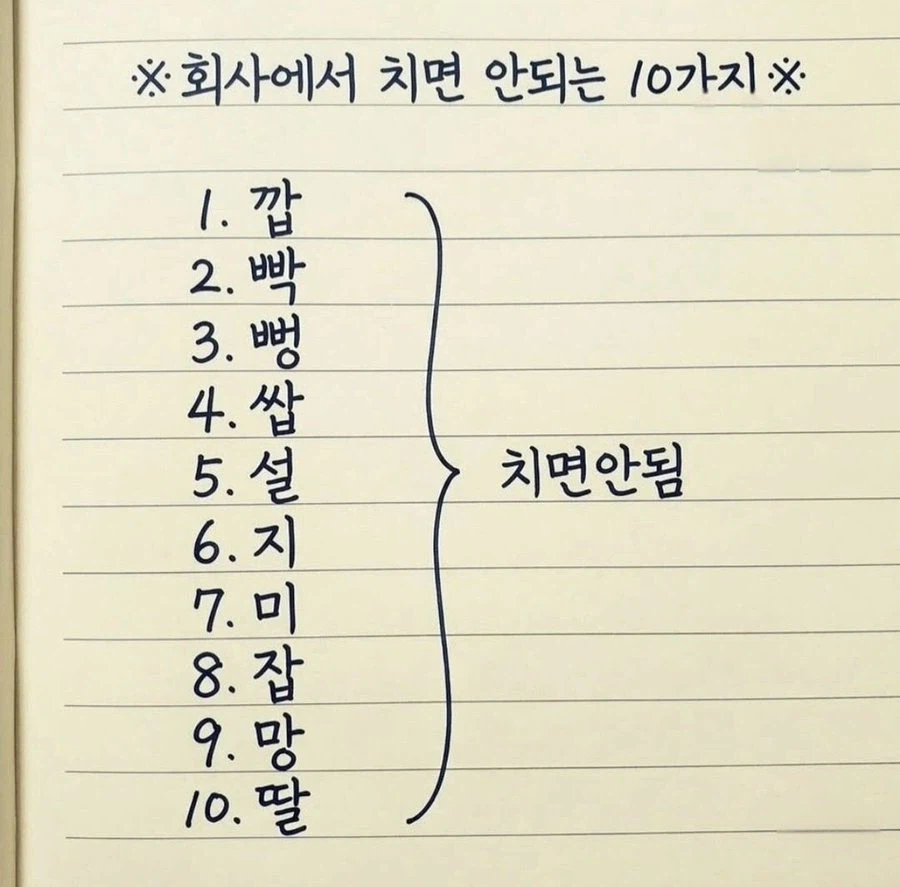 ※회사에서 치면 안되는 10가지※
1. 깝
2. 빡
3. 뻥
4. 쌉
5. 설
6. 지
7. 미
8. 잡
9. 망
10. 딸
치면안됨